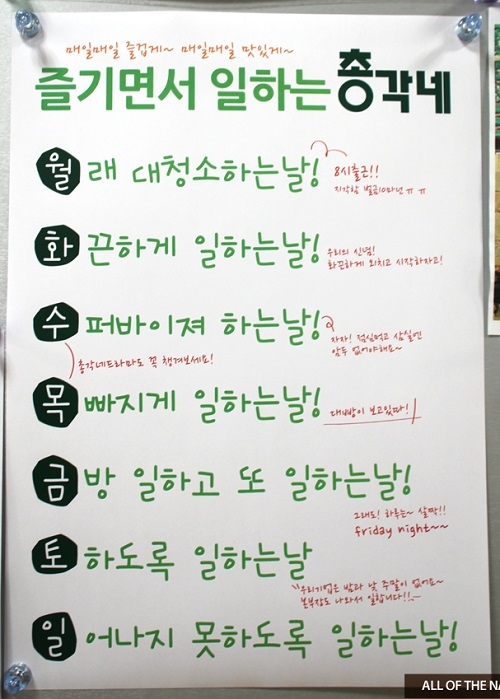 매일매일 즐겁게~ 매일매일 맛있게~
즐기면서 일하는 총각네
월래 대청소하는날!
8시출근!!
지각함 벌금10만원 ㅠㅠ
화끈하게 일하는날!
우리의 신념!
화끈하게 외치고 시작하자고!
수퍼바이져 하는날!
자자! 점심먹고 삼실엔
암두 없어야해요~
총각네드라마도 꼭 챙겨보세요!
목빠지게 일하는날!
대빵이 보고있따!
금방 일하고 또 일하는날!
그래도! 하루는~ 살짝!!
friday night~~
토하도록 일하는날
우리기업은 밤과 낮 주말이 없어요~
본부장도 나와서 일합니다!!~
일어나지 못하도록 일하는날!